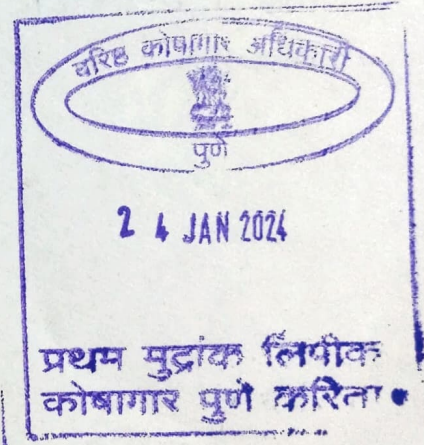 वरिष्ठ कोषागार अधिकारी
पुणे
24 JAN 2024
प्रथम मुद्रांक लिपीक
कोषागार पुणे करिता